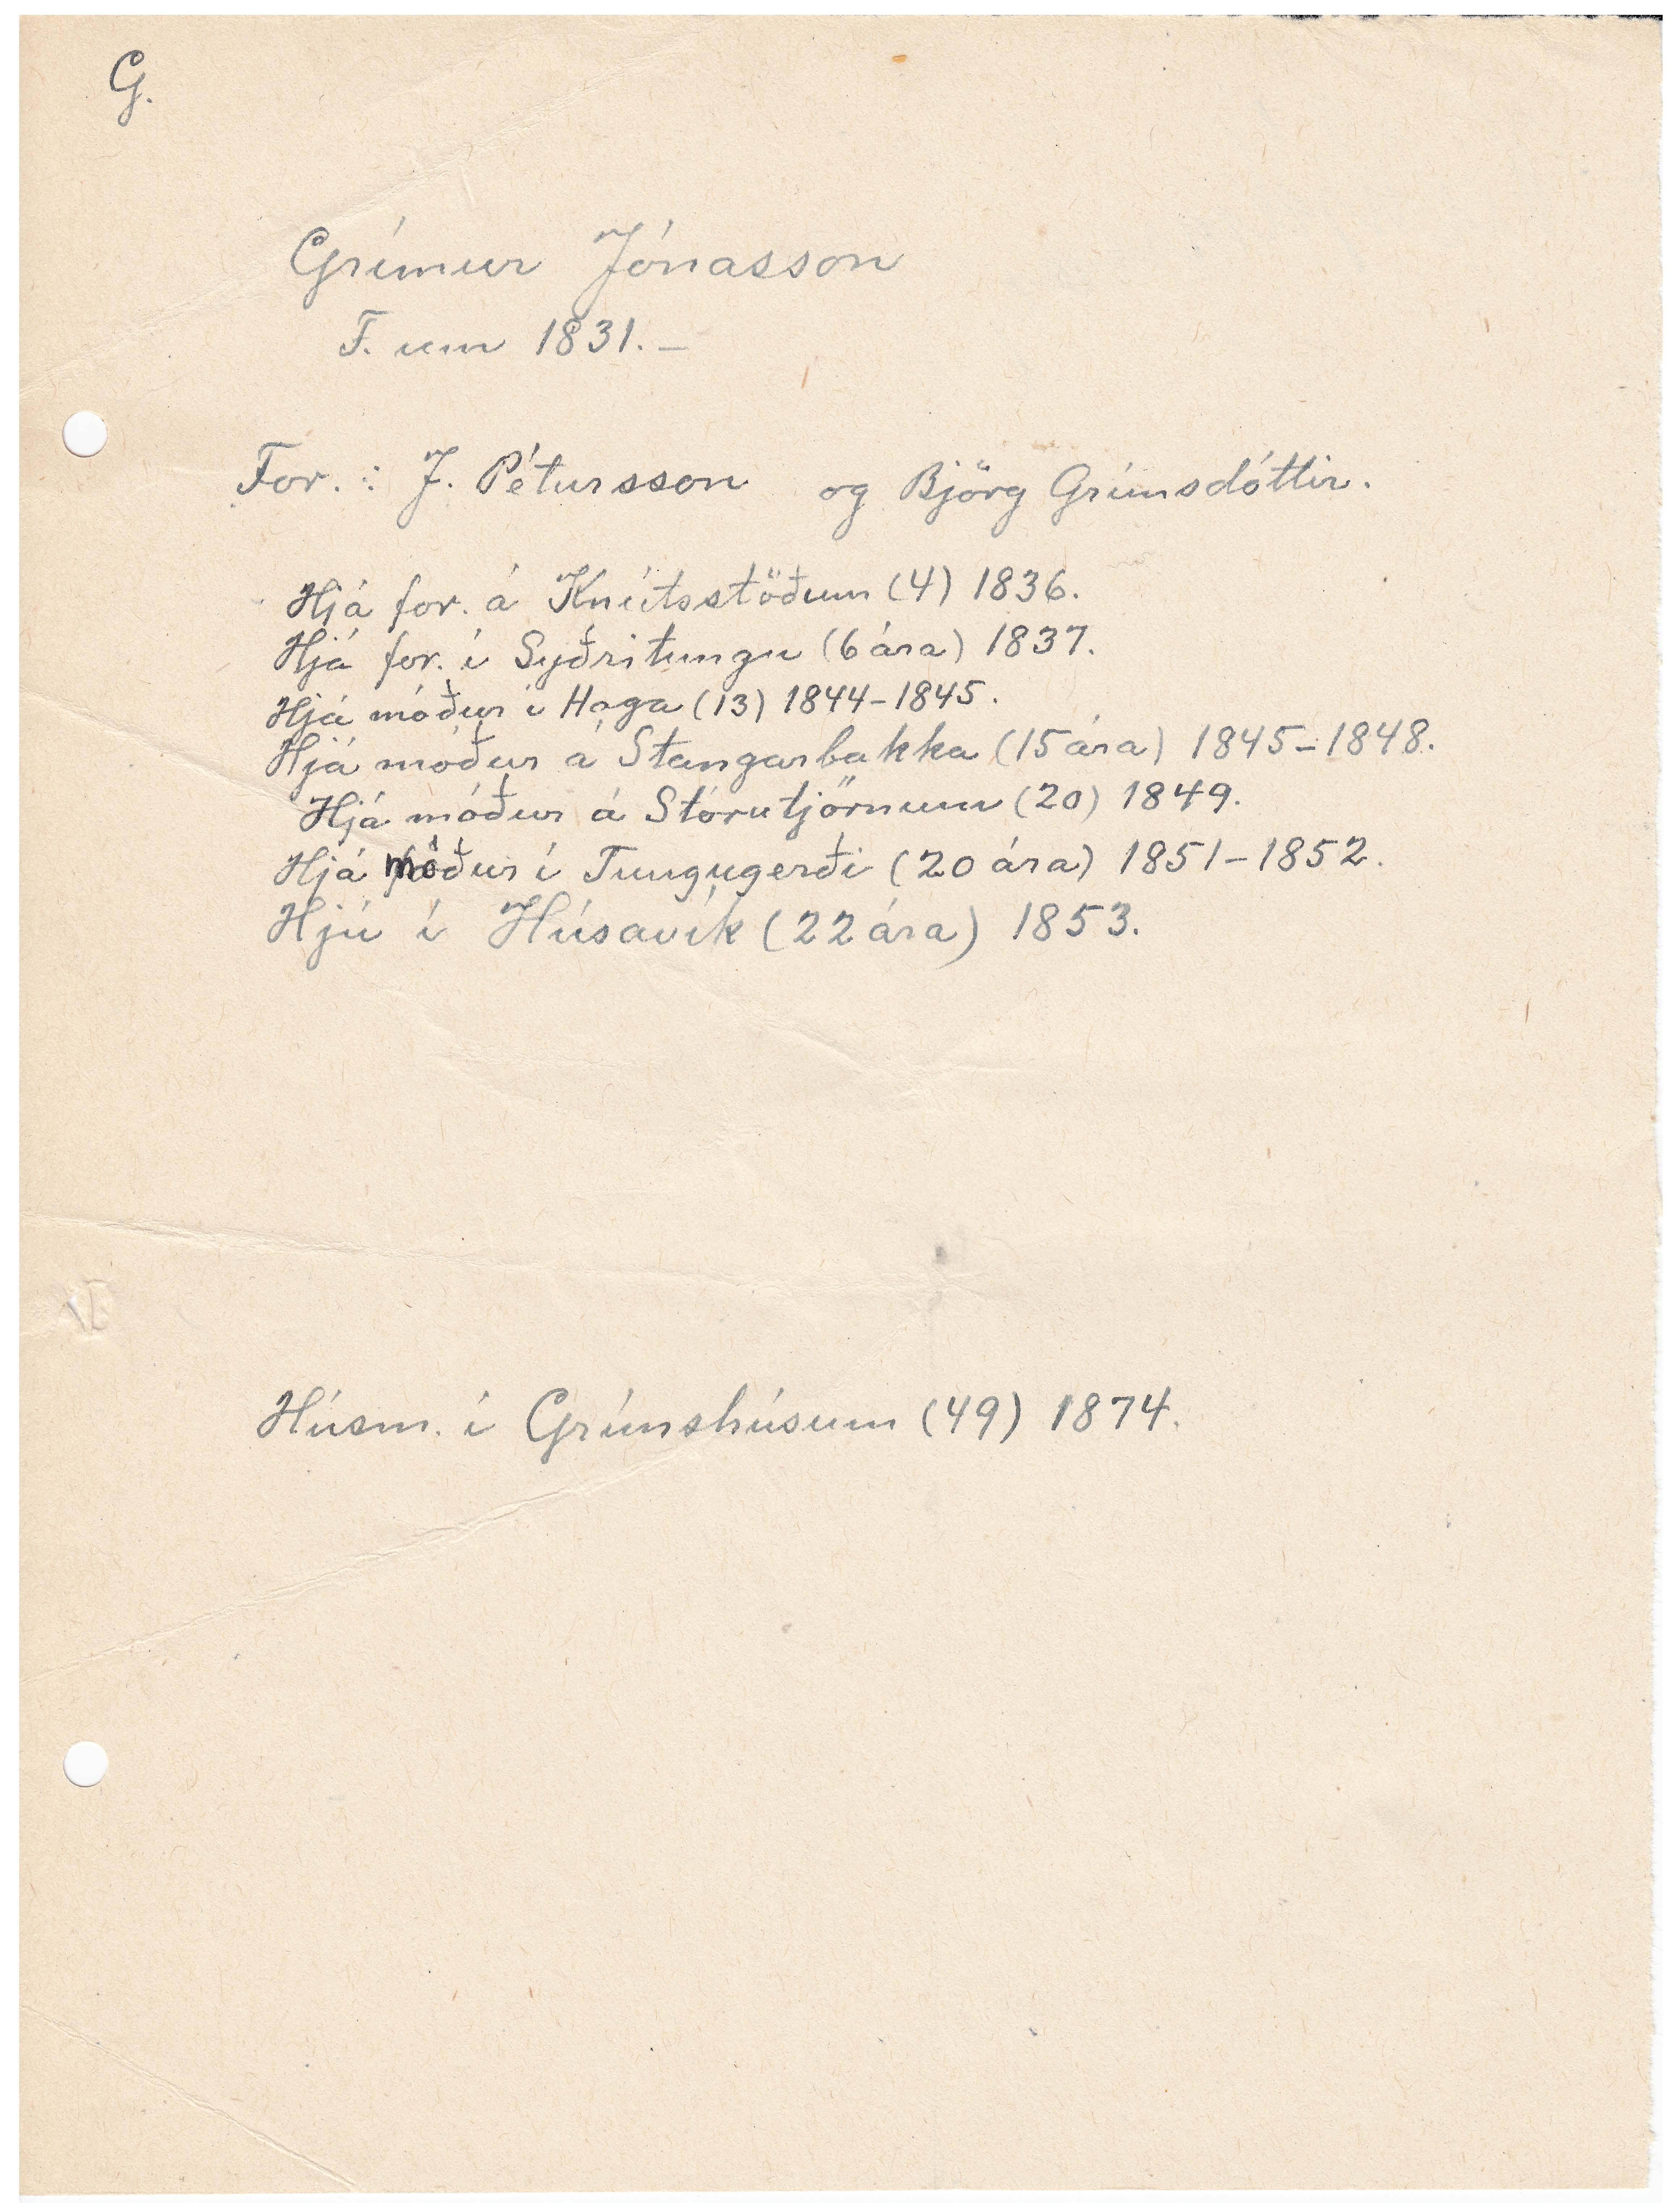 G.
Grímur Jónasson
F. um 1831. –
For. : J. Pétursson og Björg Grímsdóttir.
Hjá for. á Knútsstöðum (4) 1836.
Hjá for. í Syðritungu (6 ára) 1837.
Hjá móður í Haga (13) 1844-1845.
Hjá móður á Stangarbakka (15 ára) 1845-1848.
Hjá móður á Stórutjörnum (20) 1849.
Hjá móður í Tungugerði (20 ára) 1851-1852.
Hjú í Húsavík (22 ára) 1853.
Húsm. í Grímshúsum (49) 1874.